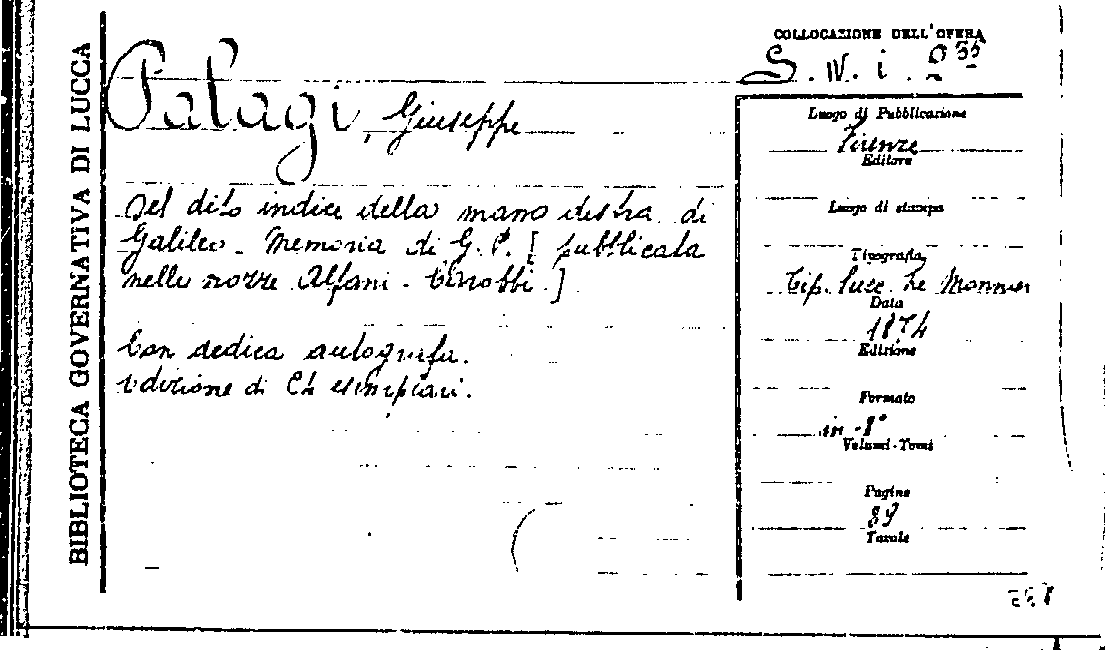 BIBLIOTECA GOVERNATIVA DI LUCCA
COLLOCAZIONE DELL'OPERA
S. W. i.
Palagi, Giuseppe
Del dito indice della mano destra di
Galileo - Memoria di G. P. [ pubblicata
nelle nozze Alfani -
Con dedica autografa.
Edizione di esemplari.
Luogo di Pubblicazione
Firenze
Editore
Luogo di stampa
Tipografia
Tip. Succ. Le Monnier
Data
1874
Edizione
Formato
in-8°
Volumi-Tomi
Pagine
Tavole